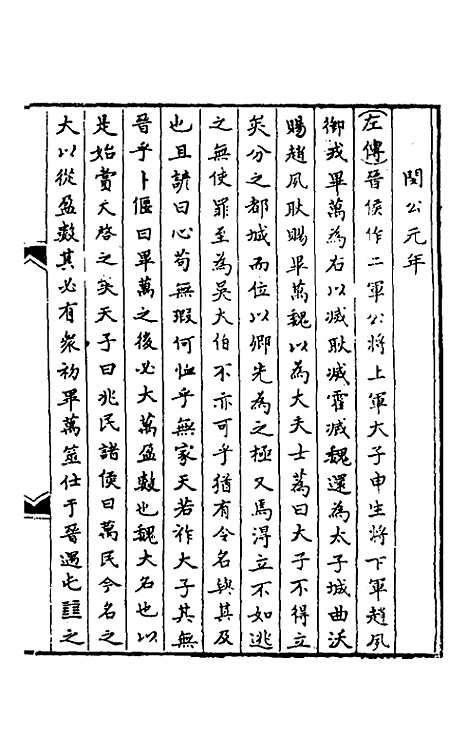 閔公元年
左傳晉侯作二軍公將上軍大子申生將下軍趙夙
御戎畢萬為右以滅耿滅霍滅魏還為太子城曲沃
賜趙夙耿賜畢萬魏以為大夫士蒍曰大子不得立
矣分之都城而位以卿先為之極又焉得立不如逃
之無使罪至為吳大伯不亦可乎猶有令名與其及
也且諺曰心苟無瑕何恤乎無家天若祚大子其無
晉乎卜偃曰畢萬之後必大萬盈數也魏大名也以
是始賞天啓之矣天子曰兆民諸侯曰萬民今名之
大以從盈數其必有衆初畢萬筮仕于晉遇屯䷂之